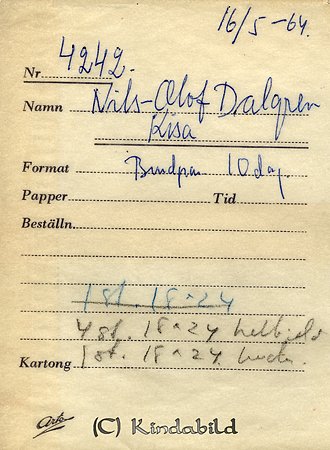 16/5-64.
Nr 4242.
Namn Nils-Olof Dalgren
Kisa
Format Brudpar 10 dag.
Papper Tid
Beställn.
1 st. 18^24
4 st. 18^24 helbild
Kartong 1 st. 18^24
Ark
(C) Kindabild